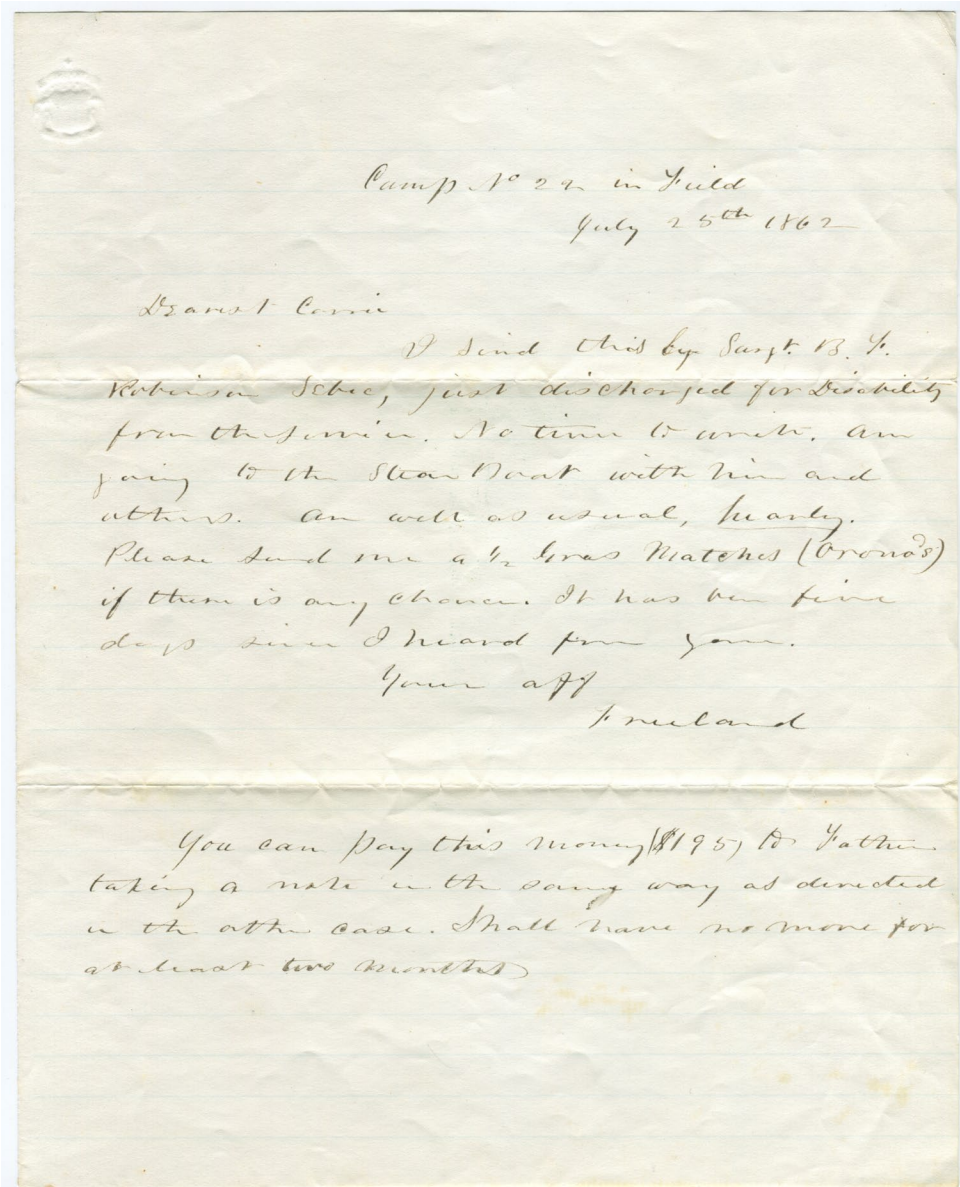 Camp No 22 in Field
July 25th 1862
Dearest Carrie
I send this by Sargt. B. F.
Robinson Sebec, just discharged for Disability
from the Service. No time to write. Am
going to the Steam Boat with him and
others. Am well as usual, nearly.
Please send me a 1/2 Gros Matches (Orono's)
if there is any chance. It has been five
days since I heard from you.
Your aff
Freeland
You can pay this money ($195) to Father
taking a note in the same way as directed
in the other case. Shall have no more for
at least two months